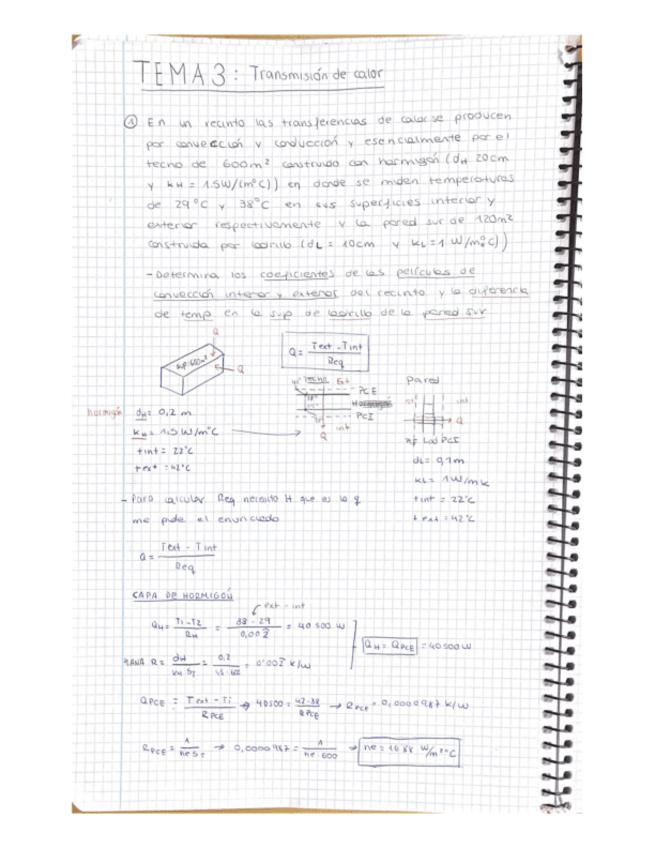 TEMA 3: Transmisión de calor
① En un recinto las transferencias de calor se producen
por convección y conducción y esencialmente por el
techo de 600m² construido con hormigón (dH 20cm
y kH = 1.5W/(m°C)) en donde se miden temperaturas
de 29°C y 38°C en sus superficies interior y
exterior respectivamente y la pared sur de 120m²
construida por ladrillo (dL = 10cm y kL = 1 W/m°C))
- Determina los coeficientes de las películas de
convección interior y exterior del recinto y la diferencia
de temp en la sup de ladrillo de la pared sur
Q
Sup: 600m²
Q
Q = Text - Tint / Req
Techo Ext
PCE
PCI
Q int
Pared
int
Q
Lad PCI
hormigón dH = 0,2 m
kH = 1.5 W/m°C
tint = 22°C
text = 42°C
dL = 0,1m
kL = 1W/mk
tint = 22°C
text = 42°C
- Para calcular Req necesito H que es lo q
me pide el enunciado
Q = Text - Tint / Req
CAPA DE HORMIGÓN
ext - int
QH = T1-T2 / RH = 38-29 / 0,002̄ = 40500 W
QH = QPCE = 40500 W
PLANA R = dH / kH ST = 0,2 / 1,5·600 = 0'002̄ K/W
QPCE = Text - Ti / RPCE → 40500 = 42-38 / RPCE → RPCE = 0,0000987 K/W
RPCE = 1 / he ST → 0,0000987 = 1 / he·600 → he = 16'88 W/m²°C